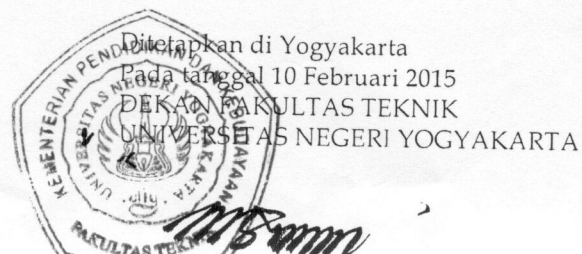 Ditetapkan di Yogyakarta
Pada tanggal 10 Februari 2015
DEKAN FAKULTAS TEKNIK
UNIVERSITAS NEGERI YOGYAKARTA
KEMENTERIAN PENDIDIKAN DAN KEBUDAYAAN
UNIVERSITAS NEGERI YOGYAKARTA
FAKULTAS TEKNIK